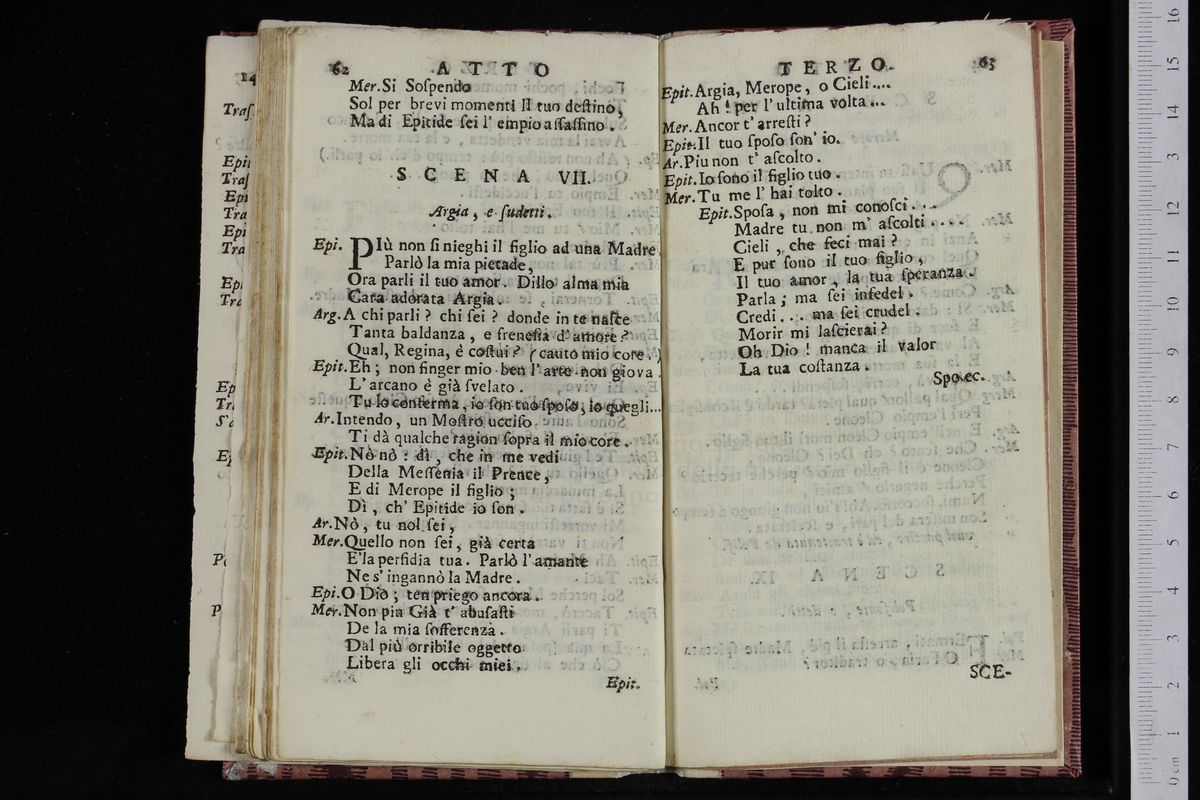 62 ATTO
Mer. Si Soſpendo
Sol per brevi momenti Il tuo deſtino,
Ma di Epitide ſei l' empio aſſaſſino.
SCENA VII.
Argia, e ſudetti.
Epi. PIù non ſi nieghi il figlio ad una Madre
Parlò la mia pietade,
Ora parli il tuo amor. Dillo alma mia
Cara adorata Argia.
Arg. A chi parli? chi ſei? donde in te naſce
Tanta baldanza, e freneſia d' amore?
Qual, Regina, è coſtui? (cauto mio core.)
Epit. Eh; non finger mio ben l' arte non giova.
L' arcano è già ſvelato.
Tu lo conferma, io ſon tuo ſpoſo, io quegli...
Ar. Intendo, un Moſtro ucciſo
Ti dà qualche ragion ſopra il mio core.
Epit. Nò nò: dì, che in me vedi
Della Meſſenia il Prence,
E di Merope il figlio;
Dì, ch' Epitide io ſon.
Ar. Nò, tu nol ſei,
Mer. Quello non ſei, già certa
E' la perfidia tua. Parlò l' amante
Ne s' ingannò la Madre.
Epi. O Dio; ten priego ancora.
Mer. Non pia Già t' abuſaſti
De la mia ſofferenza.
Dal più orribile oggetto
Libera gli occhi miei.
Epit.
TERZO. 63
Epit. Argia, Merope, o Cieli....
Ah! per l' ultima volta...
Mer. Ancor t' arreſti?
Epit. Il tuo ſpoſo ſon' io.
Ar. Piu non t' aſcolto.
Epit. Io ſono il figlio tuo.
Mer. Tu me l' hai tolto.
Epit. Spoſa, non mi conoſci...
Madre tu non m' aſcolti.....
Cieli, che feci mai?
E pur ſono il tuo figlio,
Il tuo amor, la tua ſperanza.
Parla; ma ſei infedel.
Credi... ma ſei crudel.
Morir mi laſcierai?
Oh Dio! manca il valor
La tua coſtanza.
Spo. ec.
SCE-
Traſ
Epi
Traſ
Epi
Tra
Epi
Tra
Ep
Tr
Ep
Tr
Ep
P
16
15
14
13
12
11
10
9
8
7
6
5
4
3
2
1
0 cm